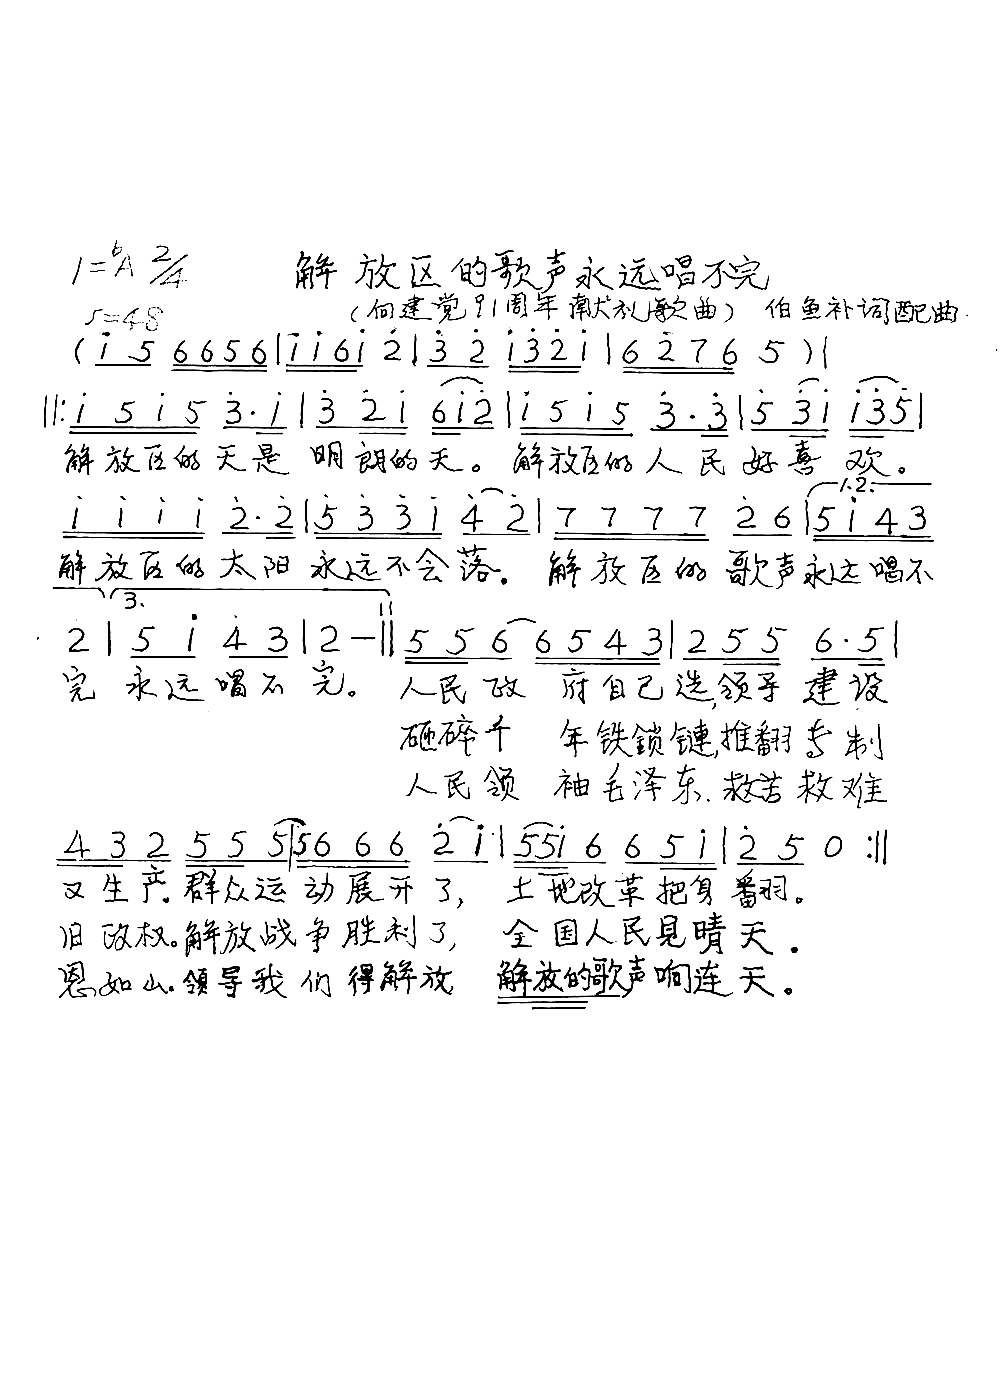 1=ᵇA 2/4 解放区的歌声永远唱不完
♩=48 (向建党91周年献礼歌曲) 伯鱼补词配曲
(i̇ 5 6656|i̇i̇6i̇ 2̇|3̇ 2̇ i̇3̇2̇i̇|6 2̇ 7 6 5)|
‖:i̇ 5 i̇ 5 3̇·i̇|3̇ 2̇ i̇ 6i̇2̇|i̇ 5 i̇ 5 3̇·3̇|5̇ 3̇i̇ i̇3̇5̇|
解放区的天是 明朗的天。 解放区的人民好喜欢。
1.2.
i̇ i̇ i̇ i̇ 2̇·2̇|5̇ 3̇ 3̇ i̇ 4̇ 2̇|7 7 7 7 2̇ 6|5 i̇ 4 3
解放区的太阳 永远不会落。 解放区的歌声永远唱不
3.
2|5 i̇ 4̇ 3|2—‖ 5 5 6 6 5 4 3|2 5 5 6·5|
完 永远唱不完。 人民政府自己选,领导建设
砸碎千年铁鎖鏈,推翻专制
人民领袖毛泽东.救苦救难
4 3 2 5 5 5|5 6 6 6 2̇ i̇|5 5 i̇ 6 6 5 i̇|2̇ 5 0 :‖
又生产.群众运动展开了, 土地改革把身翻。
旧政权。解放战争胜利了, 全国人民見晴天.
恩如山.領导我们得解放 解放的歌声响连天。